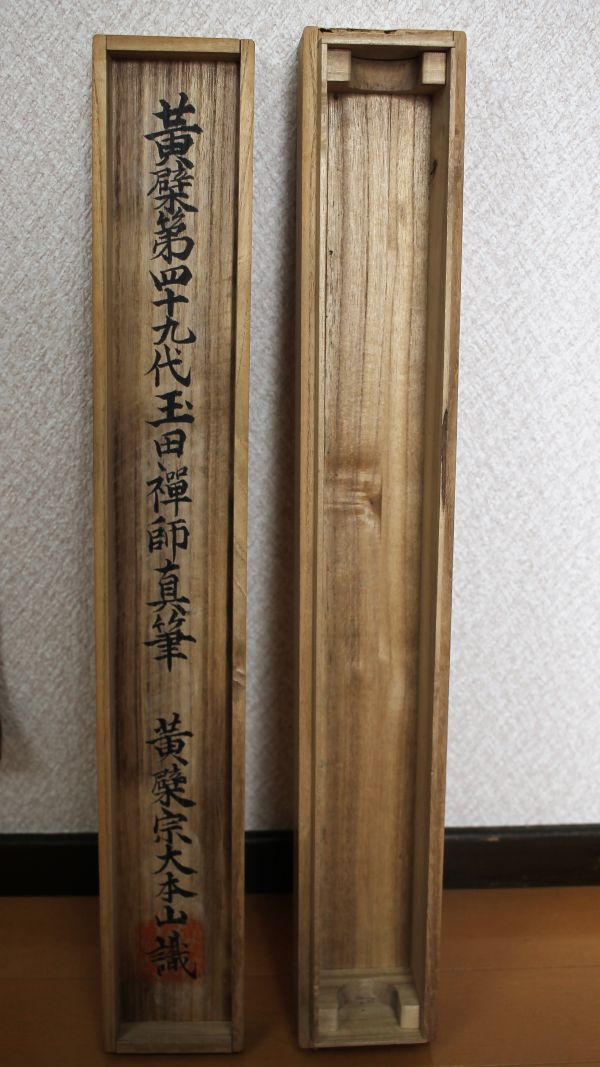 黃檗第四十九代玉田禪師真筆　黄檗宗大本山識